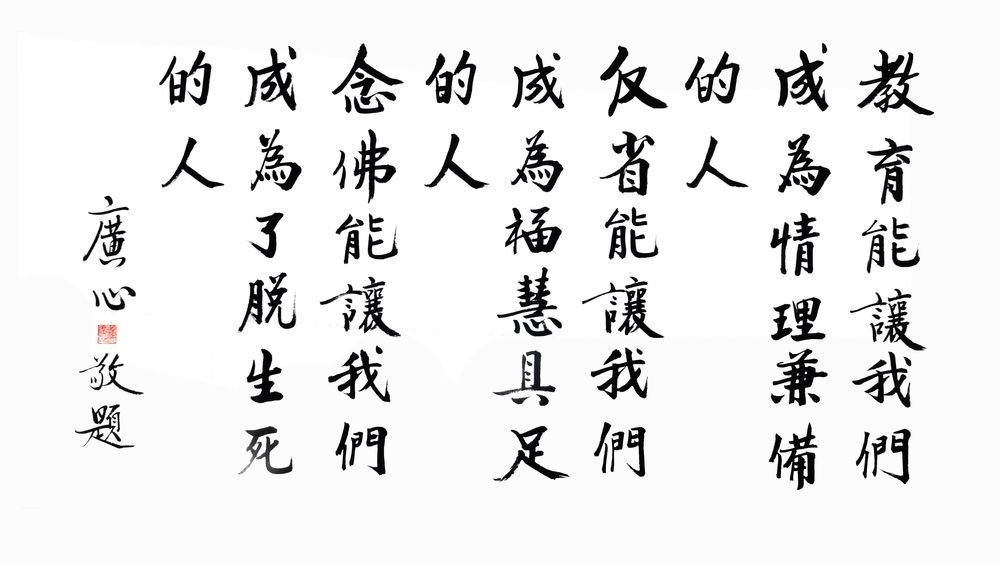 教育能讓我們
成為情理兼備
的人
反省能讓我們
成為福慧具足
的人
念佛能讓我們
成為了脫生死
的人
廣心敬題